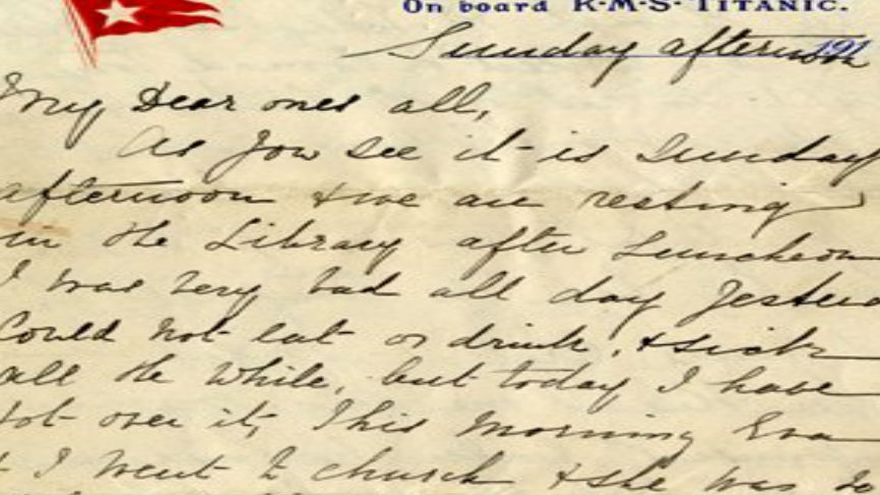 On board R·M·S· TITANIC.
Sunday afternoon 191
My Dear ones all,
As you see it is Sunday
afternoon & we are resting
in the Library after Luncheon
I was very bad all day Yester
Could not eat or drink, & sick
all the while, but today I have
got over it, This morning Eva
& I went to church & she was so